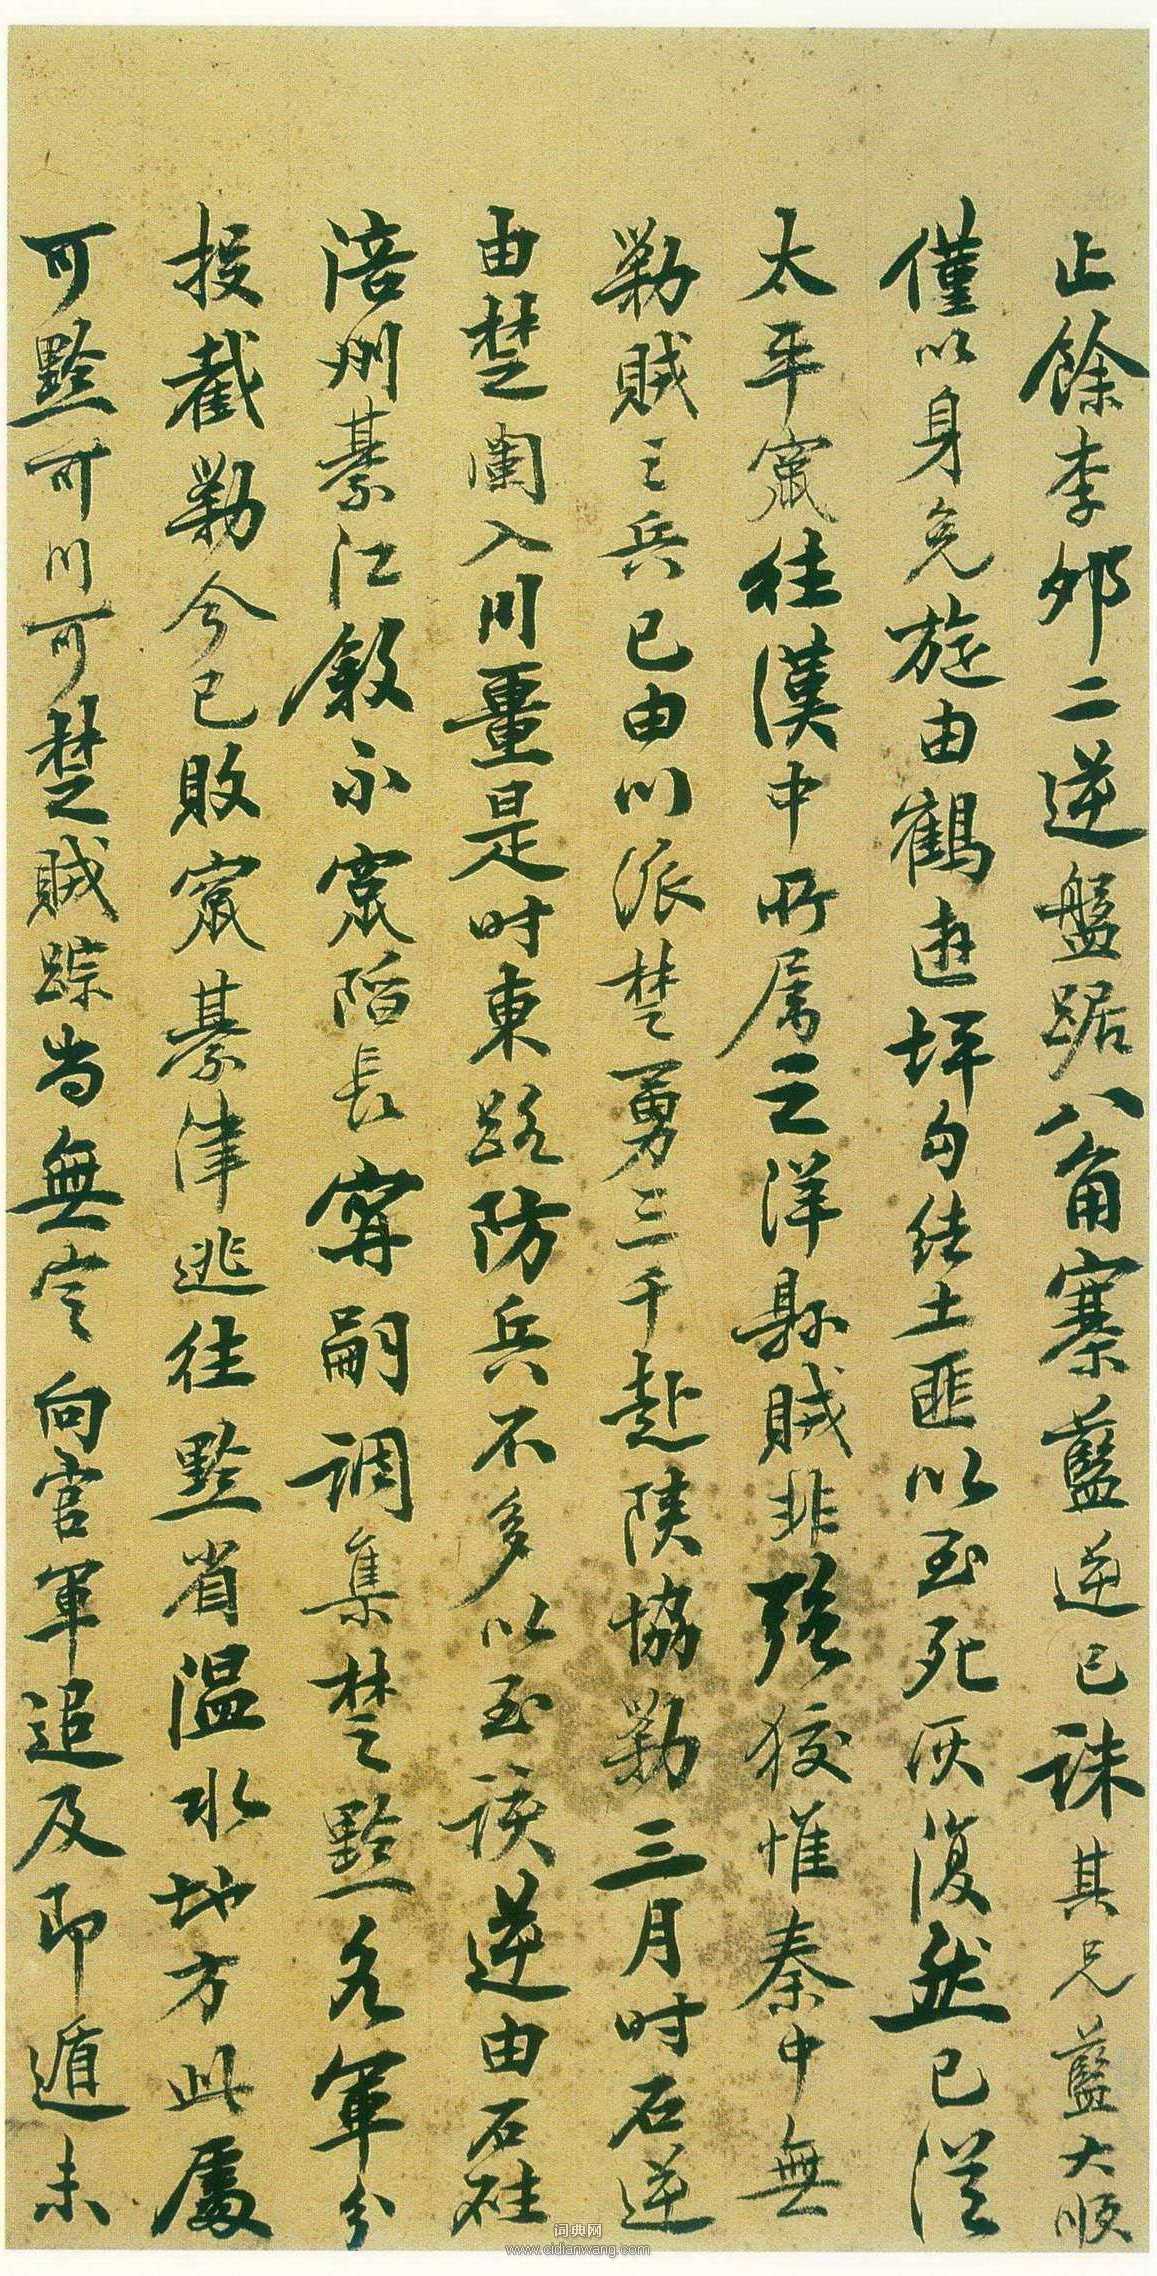 止餘李卯二逆盤踞八角寨藍逆已誅其兄藍大順
僅以身免旋由鶴遊坪勾結土匪以至死灰復燃已從
太平竄往漢中所属之洋縣賊非強狡惟秦中無
勦賊之兵已由川派楚勇三千赴陕協勦三月时石逆
由楚闌入川疆是时東路防兵不多以至该逆由石砫
涪州綦江叙永竄陷長寧嗣调集楚黔各軍分
投截勦今已敗竄綦津逃往黔省温水地方此處
可黔可川可楚賊踪尚無定向官軍追及即遁未
词典网
www.cidianwang.com